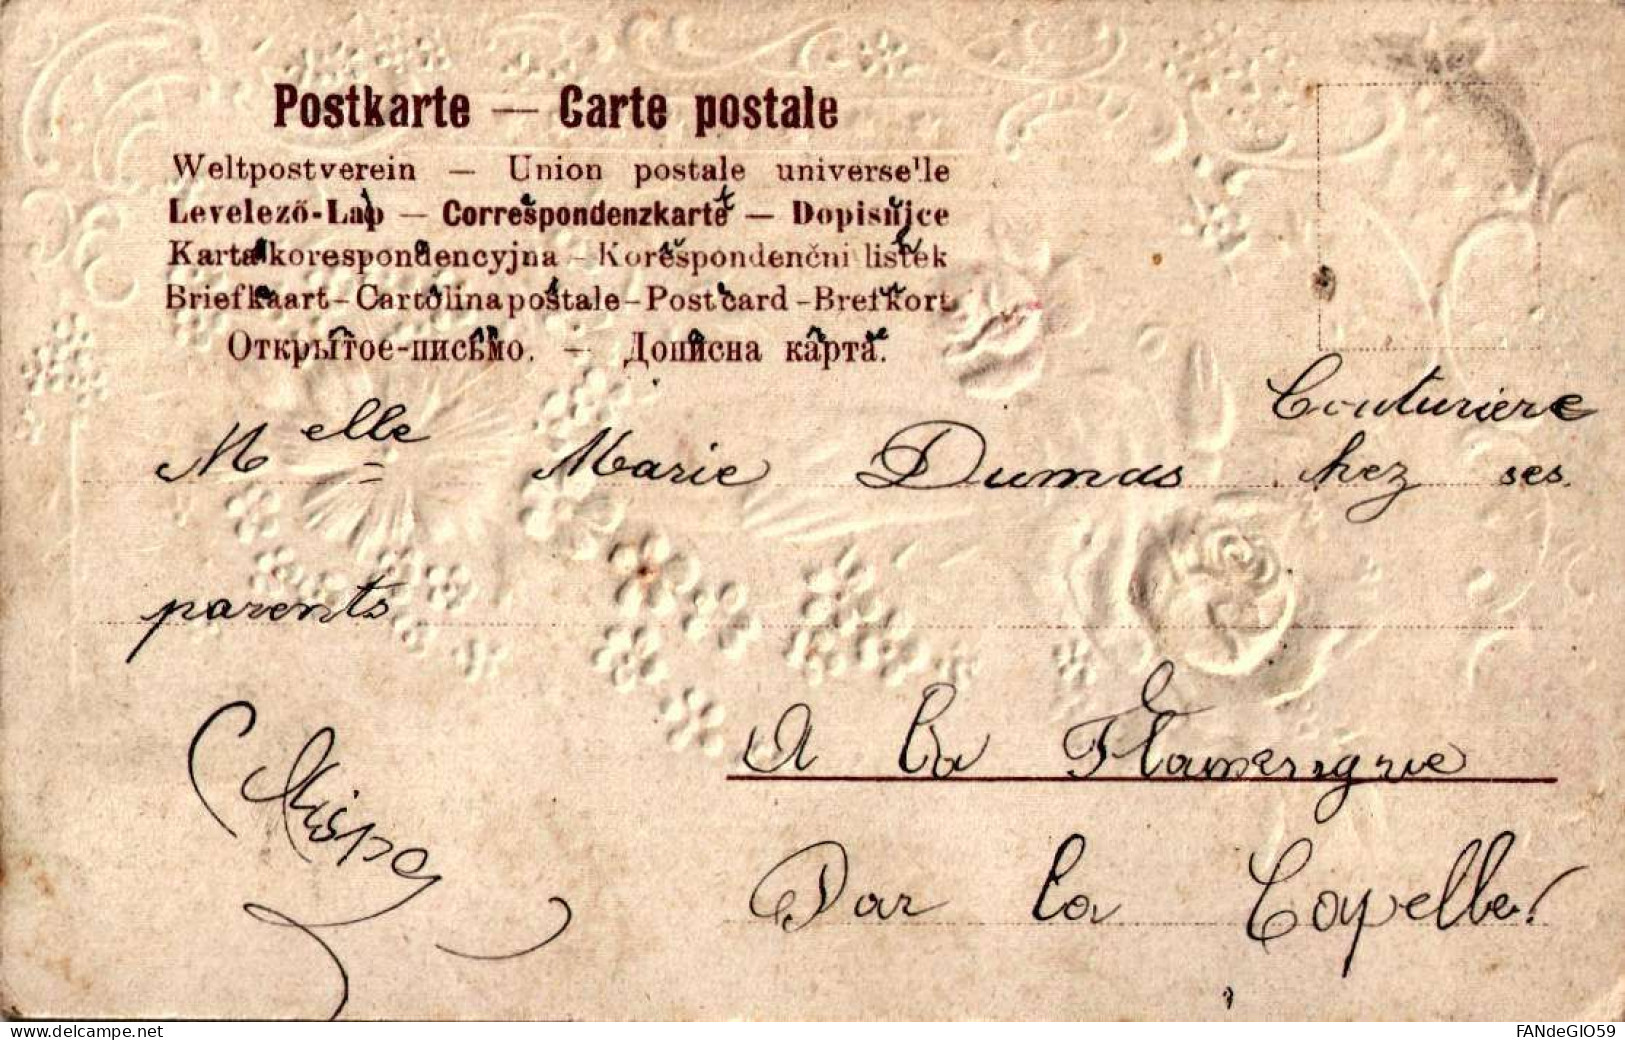 Postkarte — Carte postale
Weltpostverein — Union postale universelle
Levelező-Lap — Correspondenzkarte — Dopisnjce
Karta korespondencyjna – Korespondenčni listek
Briefkaart – Cartolina postale – Post card – Brefkort
Открытое-письмо. — Дописна карта.
Couturiere
Melle Marie Dumas chez ses
parents
A la Flamengrie
Par la Capelle
www.delcampe.net
FANdeGIO59